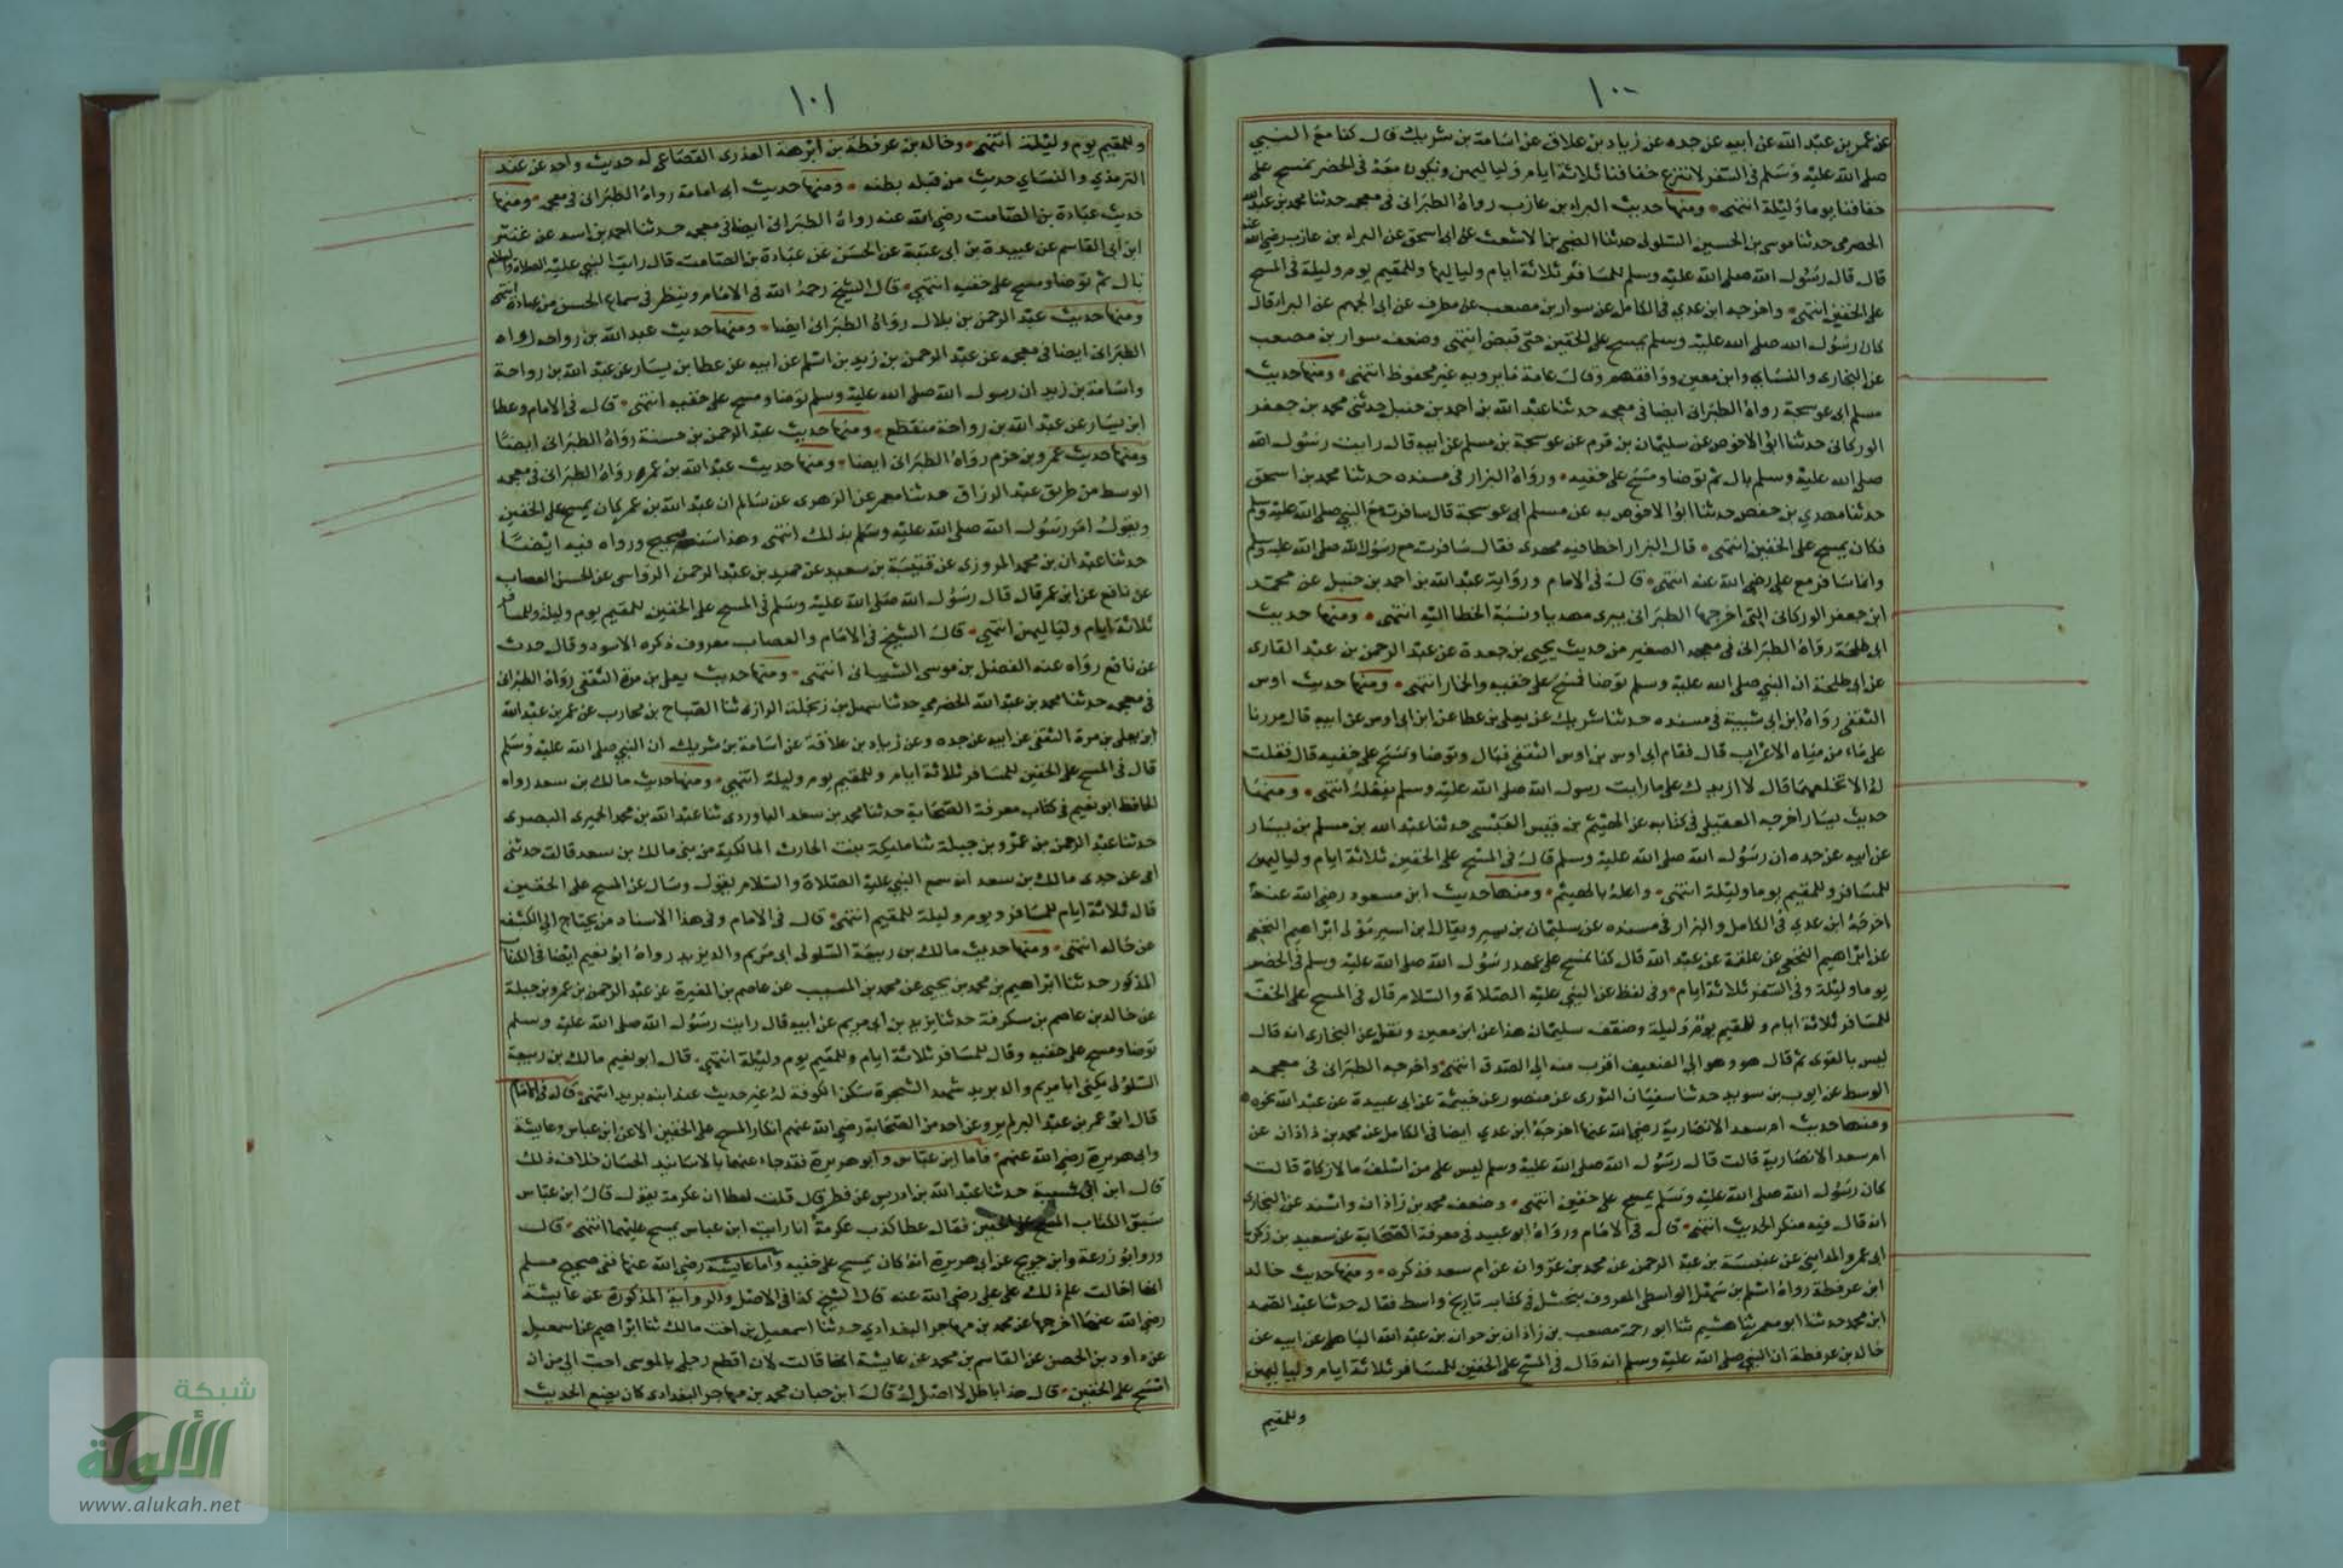 ١٠٠
عن عمر بن عبد الله عن ابيه عن جده عن زياد بن علاق عن اسامة بن شريك قال كنا مع النبي
صلى الله عليه وسلم في السفر لاننزع خفافنا ثلاثة ايام ولياليهن ونكون معه في الحضر نمسح على
خفافنا يوما وليلة انتهى ومنها حديث البراء بن عازب رواه الطبراني في معجمه حدثنا محمد بن عبد الله
الحضرمي حدثنا موسى بن الحسين السلولي حدثنا الصبي بن الاشعث عن ابي اسحق عن البراء بن عازب رضي الله عنه
قال قال رسول الله صلى الله عليه وسلم للمسافر ثلاثة ايام ولياليها وللمقيم يوم وليلة في المسح
على الخفين انتهى واخرجه ابن عدي في الكامل عن سوار بن مصعب عن مطرف عن ابي الجهم عن البراء قال
كان رسول الله صلى الله عليه وسلم يمسح على الخفين حتى قبض انتهى وضعف سوار بن مصعب
عن البخاري والنسائي وابن معين ووافقهم وقال عامة ما يرويه غير محفوظ انتهى ومنها حديث
مسلم ابي عوسجة رواه الطبراني ايضا في معجمه حدثنا عبد الله بن احمد بن حنبل حدثني محمد بن جعفر
الوركاني حدثنا ابو الاحوص عن سليمان بن قرم عن عوسجة بن مسلم عن ابيه قال رايت رسول الله
صلى الله عليه وسلم بال ثم توضا ومسح على خفيه ورواه البزار في مسنده حدثنا محمد بن اسحق
حدثنا مهدي بن حفص حدثنا ابو الاحوص به عن مسلم ابي عوسجة قال سافرت مع النبي صلى الله عليه وسلم
فكان يمسح على الخفين انتهى قال البزار اخطا فيه مهدي فقال سافرت مع رسول الله صلى الله عليه وسلم
وانما سافر مع علي رضي الله عنه انتهى قال في الامام ورواية عبد الله بن احمد بن حنبل عن محمد
ابن جعفر الوركاني التي اخرجها الطبراني يبرى مهديا ونسبة الخطا اليه انتهى ومنها حديث
ابي طلحة رواه الطبراني في معجمه الصغير من حديث يحيى بن جعدة عن عبد الرحمن بن عبد القاري
عن ابي طلحة ان النبي صلى الله عليه وسلم توضا فمسح على خفيه والخمار انتهى ومنها حديث اوس
الثقفي رواه ابن ابي شيبة في مسنده حدثنا شريك عن يعلى بن عطا عن ابن ابي اوس عن ابيه قال مررنا
على ماء من مياه الاعراب قال فقام ابي اوس بن اوس الثقفي فبال وتوضا ومسح على خفيه قال فقلت
له الا تخلعهما قال لا ازيدك على ما رايت رسول الله صلى الله عليه وسلم يفعله انتهى ومنها
حديث يسار اخرجه العقيلي في كتابه عن الهيثم بن قيس العيشي حدثنا عبد الله بن مسلم بن يسار
عن ابيه عن جده ان رسول الله صلى الله عليه وسلم قال في المسح على الخفين ثلاثة ايام ولياليهن
للمسافر وللمقيم يوما وليلة انتهى واعله بالهيثم ومنها حديث ابن مسعود رضي الله عنه
اخرجه ابن عدي في الكامل والبزار في مسنده عن سليمان بن يسير ويقال ابن اسير مولى ابراهيم النخعي
عن ابراهيم النخعي عن علقمة عن عبد الله قال كنا نمسح على عهد رسول الله صلى الله عليه وسلم في الحضر
يوما وليلة وفي السفر ثلاثة ايام وفي لفظ عن النبي عليه الصلاة والسلام قال في المسح على الخف
للمسافر ثلاثة ايام وللمقيم يوم وليلة وضعف سليمان هذا عن ابن معين ونقل عن البخاري انه قال
ليس بالقوي ثم قال هو وهو الى الضعيف اقرب منه الى الصدق انتهى واخرجه الطبراني في معجمه
الوسط عن ايوب بن سويد حدثنا سفيان الثوري عن منصور عن خيثمة عن ابي عبيدة عن عبد الله نحوه
ومنها حديث ام سعد الانصارية رضي الله عنها اخرجه ابن عدي ايضا في الكامل عن محمد بن زاذان عن
ام سعد الانصارية قالت قال رسول الله صلى الله عليه وسلم ليس على من اسلف مالا زكاة قالت
كان رسول الله صلى الله عليه وسلم يمسح على خفين انتهى وضعف محمد بن زاذان واسند عن البخاري
انه قال فيه منكر الحديث انتهى قال في الامام ورواه ابو عبيد في معرفة الصحابة عن سعيد بن زكريا
ابي عمر والمدايني عن عنبسة بن عبد الرحمن عن محمد بن غزوان عن ام سعد فذكره ومنها حديث خالد
ابن عرفطة رواه اسلم بن سهل الواسطي المعروف ببحشل في كتابه تاريخ واسط فقال حدثنا عبد الصمد
ابن محمد حدثنا ابو معمر ثنا هشيم ثنا ابو رحمة مصعب بن زاذان بن جوان بن عبد الله الباهلي عن ابيه عن
خالد بن عرفطة ان النبي صلى الله عليه وسلم انه قال في المسح على الخفين للمسافر ثلاثة ايام ولياليهن
وللمقيم
١٠١
وللمقيم يوم وليلة انتهى وخالد بن عرفطة بن ابرهة العذري القضاعي له حديث واحد عن عند
الترمذي والنسائي حديث من قبله بطنه ومنها حديث ابي امامة رواه الطبراني في معجمه ومنها
حديث عبادة بن الصامت رضي الله عنه رواه الطبراني ايضا في معجمه حدثنا احمد بن اسد عن عنتر
ابن ابي القاسم عن عبيدة بن ابي عتبة عن الحسن عن عبادة بن الصامت قال رايت النبي عليه الصلاة والسلام
بال ثم توضا ومسح على خفيه انتهى قال الشيخ رحمه الله في الامام وينظر في سماع الحسن من عبادة انتهى
ومنها حديث عبد الرحمن بن بلال رواه الطبراني ايضا ومنها حديث عبد الله بن رواحه رواه
الطبراني ايضا في معجمه عن عبد الرحمن بن زيد بن اسلم عن ابيه عن عطا بن يسار عن عبد الله بن رواحة
واسامة بن زيد ان رسول الله صلى الله عليه وسلم توضا ومسح على خفيه انتهى قال في الامام وعطا
ابن يسار عن عبد الله بن رواحة منقطع ومنها حديث عبد الرحمن بن حسنة رواه الطبراني ايضا
ومنها حديث عمرو بن حزم رواه الطبراني ايضا ومنها حديث عبد الله بن عمر رواه الطبراني في معجمه
الوسط من طريق عبد الرزاق حدثنا معمر عن الزهري عن سالم ان عبد الله بن عمر كان يمسح على الخفين
ويقول امر رسول الله صلى الله عليه وسلم بذلك انتهى وهذا سند صحيح ورواه فيه ايضا
حدثنا عبدان بن محمد المروزي عن قتيبة بن سعيد عن حميد بن عبد الرحمن الرواسي عن الحسن العصاب
عن نافع عن ابن عمر قال قال رسول الله صلى الله عليه وسلم في المسح على الخفين للمقيم يوم وليلة وللمسافر
ثلاثة ايام ولياليهن انتهى قال الشيخ في الامام والعصاب معروف ذكره الاسود وقال حدث
عن نافع رواه عنه الفضل بن موسى الشيباني انتهى ومنها حديث يعلى بن مرة الثقفي رواه الطبراني
في معجمه حدثنا محمد بن عبد الله الحضرمي حدثنا سهل بن زنجلة الرازي ثنا الصباح بن محارب عن عمر بن عبد الله
ابن يعلى بن مرة الثقفي عن ابيه عن جده وعن زياد بن علاقة عن اسامة بن شريك ان النبي صلى الله عليه وسلم
قال في المسح على الخفين للمسافر ثلاثة ايام وللمقيم يوم وليلة انتهى ومنها حديث مالك بن سعد رواه
الحافظ ابو نعيم في كتاب معرفة الصحابة حدثنا محمد بن سعد الباوردي ثنا عبد الله بن محمد الحيري البصري
حدثنا عبد الرحمن بن عمرو بن جبلة ثنا مليكة بنت الحارث المالكية من بني مالك بن سعد قالت حدثني
ابي عن جدي مالك بن سعد انه سمع النبي عليه الصلاة والسلام يقول وسال عن المسح على الخفين
قال ثلاثة ايام للمسافر ويوم وليلة للمقيم انتهى قال في الامام وفي هذا الاسناد من يحتاج الى الكشف
عن حاله انتهى ومنها حديث مالك بن ربيعة السلولي ابي مريم والد يزيد رواه ابو نعيم ايضا في الكتاب
المذكور حدثنا ابراهيم بن محمد بن يحيى عن محمد بن المسيب عن عاصم بن المغيرة عن عبد الرحمن بن عمرو بن جبلة
عن خالد بن عاصم بن سكرفة حدثنا يزيد بن ابي مريم عن ابيه قال رايت رسول الله صلى الله عليه وسلم
توضا ومسح على خفيه وقال للمسافر ثلاثة ايام وللمقيم يوم وليلة انتهى قال ابو نعيم مالك بن ربيعة
السلولي يكنى ابا مريم والد بريد شهد الشجرة سكن الكوفة له غير حديث عند ابنه بريد انتهى قال في الامام
قال ابو عمر بن عبد البر لم يرو عن احد من الصحابة رضي الله عنهم انكار المسح على الخفين الا عن ابن عباس وعايشة
وابي هريرة رضي الله عنهم فاما ابن عباس وابو هريرة فقد جاء عنهما بالاسانيد الحسان خلاف ذلك
قال ابن ابي شيبة حدثنا عبد الله بن ادريس عن فطر قال قلت لعطا ان عكرمة يقول قال ابن عباس
سبق الكتاب المسح على الخفين فقال عطا كذب عكرمة انا رايت ابن عباس يمسح عليهما انتهى قال
وروا ابو زرعة وابن جريج عن ابي هريرة انه كان يمسح على خفيه واما عايشة رضي الله عنها ففي صحيح مسلم
انها احالت علم ذلك على علي رضي الله عنه قال الشيخ كذا في الاصل والرواية المذكورة عن عايشة
رضي الله عنها اخرجها عن محمد بن مهاجر البغدادي حدثنا اسمعيل بن اخت مالك ثنا ابراهيم عن اسمعيل
عن داود بن الحصن عن القاسم بن محمد عن عايشة انها قالت لان اقطع رجلي بالموسى احب الي من ان
امسح على الخفين قال هذا باطل لا اصل له قال ابن حبان محمد بن مهاجر البغدادي كان يضع الحديث
شبكة
الألوكة
www.alukah.net